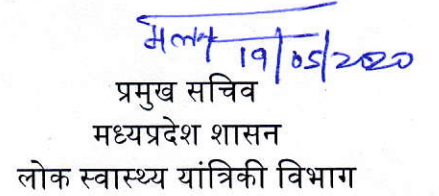 19/05/2020
प्रमुख सचिव
मध्यप्रदेश शासन
लोक स्वास्थ्य यांत्रिकी विभाग